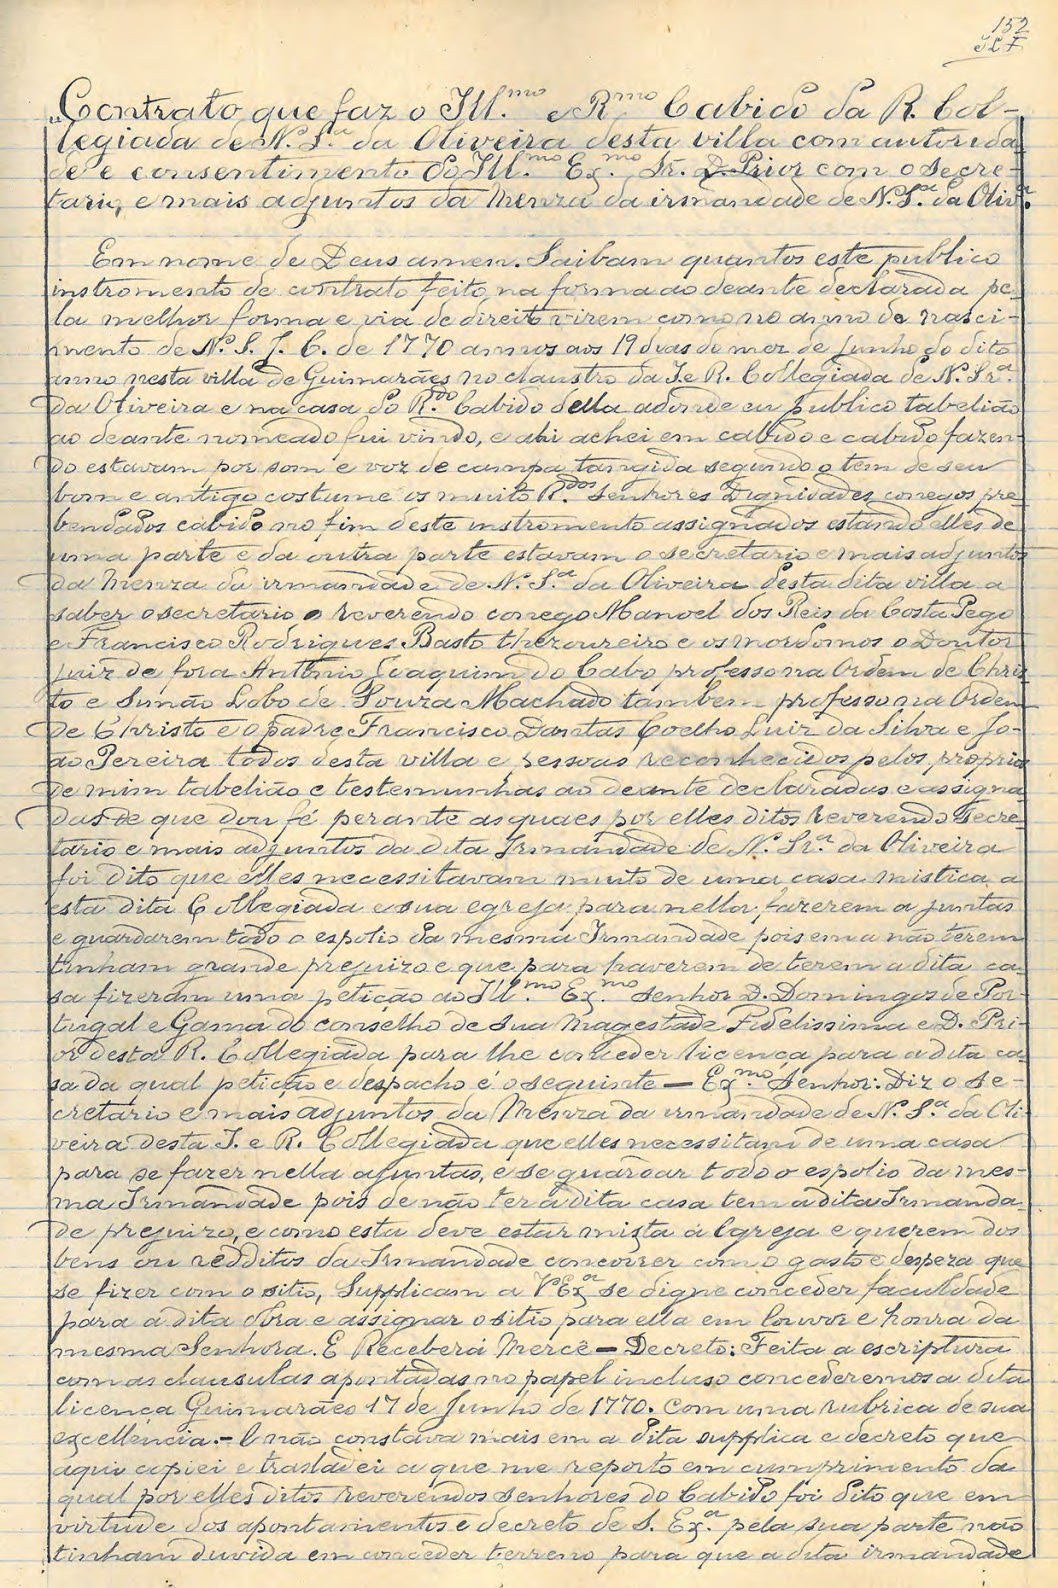 152
Contrato que faz o Ill.mo e R.mo Cabido da R. Col-
legiada de N. S.ra da Oliveira desta villa com autorida
de e consentimento do Ill.mo Ex.mo Sr. D. Prior com o secre-
tario, e mais adjuntos da Menza da irmandade de N. S.a da Oliv.a
Em nome de Deus amen. Saibam quantos este publico
instromento de contrato feito na forma ao deante declarada pe-
la melhor forma e via de direito virem como no anno de nasci-
mento de N. S. J. C. de 1770 annos aos 19 dias do mez de Junho do dito
anno nesta villa de Guimarães no claustro da I. e R. Collegiada de N. Sr.a
da Oliveira e na casa do R.do Cabido della adonde eu publico tabelião
ao deante nomeado fui vindo, e ahi achei em cabido e cabido fazen-
do estavam por som e voz de campa tangida segundo o tem de seu
bom e antigo costume os muito R.dos Senhores Dignidades conegos pre
bendados cabido no fim deste instromento assignados estando elles de
uma parte e da outra parte estavam o secretario e mais adjuntos
da Menza da irmandade de N. S.a da Oliveira desta dita villa a
saber o secretario o reverendo conego Manoel dos Reis da Costa Pego
e Francisco Rodrigues Basto thezoureiro e os mordomos o Doutor
Juiz de fora Antonio Joaquim do Cabo professo na Ordem de Chris
to e Simão Lobo de Souza Machado tambem professo na Ordem
de Christo e o padre Francisco Dantas Coelho Luiz da Silva e Jo-
ão Pereira todos desta villa e pessoas reconhecidos pelos proprios
de mim tabelião e testemunhas ao deante declaradas e assigna
das de que dou fé perante as quaes por elles ditos reverendo secre-
tario e mais adjuntos da dita Irmandade de N. Sr.a da Oliveira
foi dito que elles necessitavam muito de uma casa mistica a
esta dita Collegiada e sua egreja para nella fazerem a juntas
e guardarem todo o espolio da mesma Irmandade pois em a não terem
tinham grande prejuizo e que para haverem de terem a dita ca-
sa fizeram uma petição ao Ill.mo Ex.mo senhor D. Domingos de Por-
tugal e Gama do conselho de sua Magestade Fidelissima e D. Pri-
or desta R. Collegiada para lhe conceder licença para a dita ca-
sa da qual petição e despacho é o seguinte — Ex.mo Senhor: Diz o se-
cretario e mais adjuntos da Menza da irmandade de N. S.a da Oli-
veira desta I. e R. Collegiada que elles necessitam de uma casa
para se fazer nella ajuntas, e se guardar todo o espolio da mes-
ma Irmandade pois de não ter a dita casa tem a dita Irmanda-
de prejuizo, e como esta deve estar mista á Egreja e querem dos
bens ou redditos da Irmandade concorrer com o gasto e despeza que
se fizer com o sitio, Supplicam a V Ex.a se digne conceder faculdade
para a dita obra e assignar o sitio para ella em louvor e honra da
mesma Senhora. E Receberá Mercê — Decreto: Feita a escriptura
com as clausulas apontadas no papel incluso concederemos a dita
licença Guimarães 17 de Junho de 1770. Com uma rubrica de sua
excellencia. — E não constava mais em a dita supplica e decreto que
aqui copiei e trasladei a que me reporto em cumprimento da
qual por elles ditos reverendos senhores do Cabido foi dito que em
virtude dos apontamentos e decreto de S. Ex.a pela sua parte não
tinham duvida em conceder terreno para que a dita irmandade